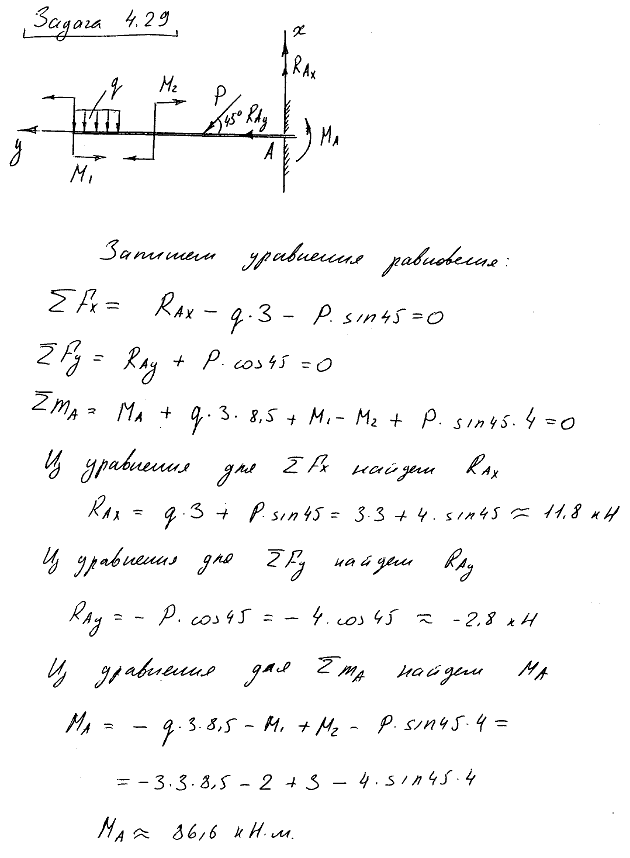 Задача 4.29
x
R_Ax
q
M₂
P
45°
R_Ay
y
M₁
A
M_A
Запишем уравнения равновесия:
ΣFx = R_Ax − q·3 − P·sin45 = 0
ΣFy = R_Ay + P·cos45 = 0
Σm_A = M_A + q·3·8,5 + M₁ − M₂ + P·sin45·4 = 0
Из уравнения для ΣFx найдем R_Ax
R_Ax = q·3 + P·sin45 = 3·3 + 4·sin45 ≈ 11.8 кН
Из уравнения для ΣFy найдем R_Ay
R_Ay = − P·cos45 = − 4·cos45 ≈ −2,8 кН
Из уравнения для Σm_A найдем M_A
M_A = − q·3·8,5 − M₁ + M₂ − P·sin45·4 =
= −3·3·8,5 − 2 + 3 − 4·sin45·4
M_A ≈ 86,6 кН·м.